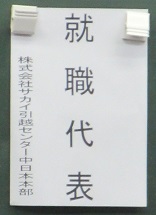 就職代表
株式会社サカイ引越センター中日本本部